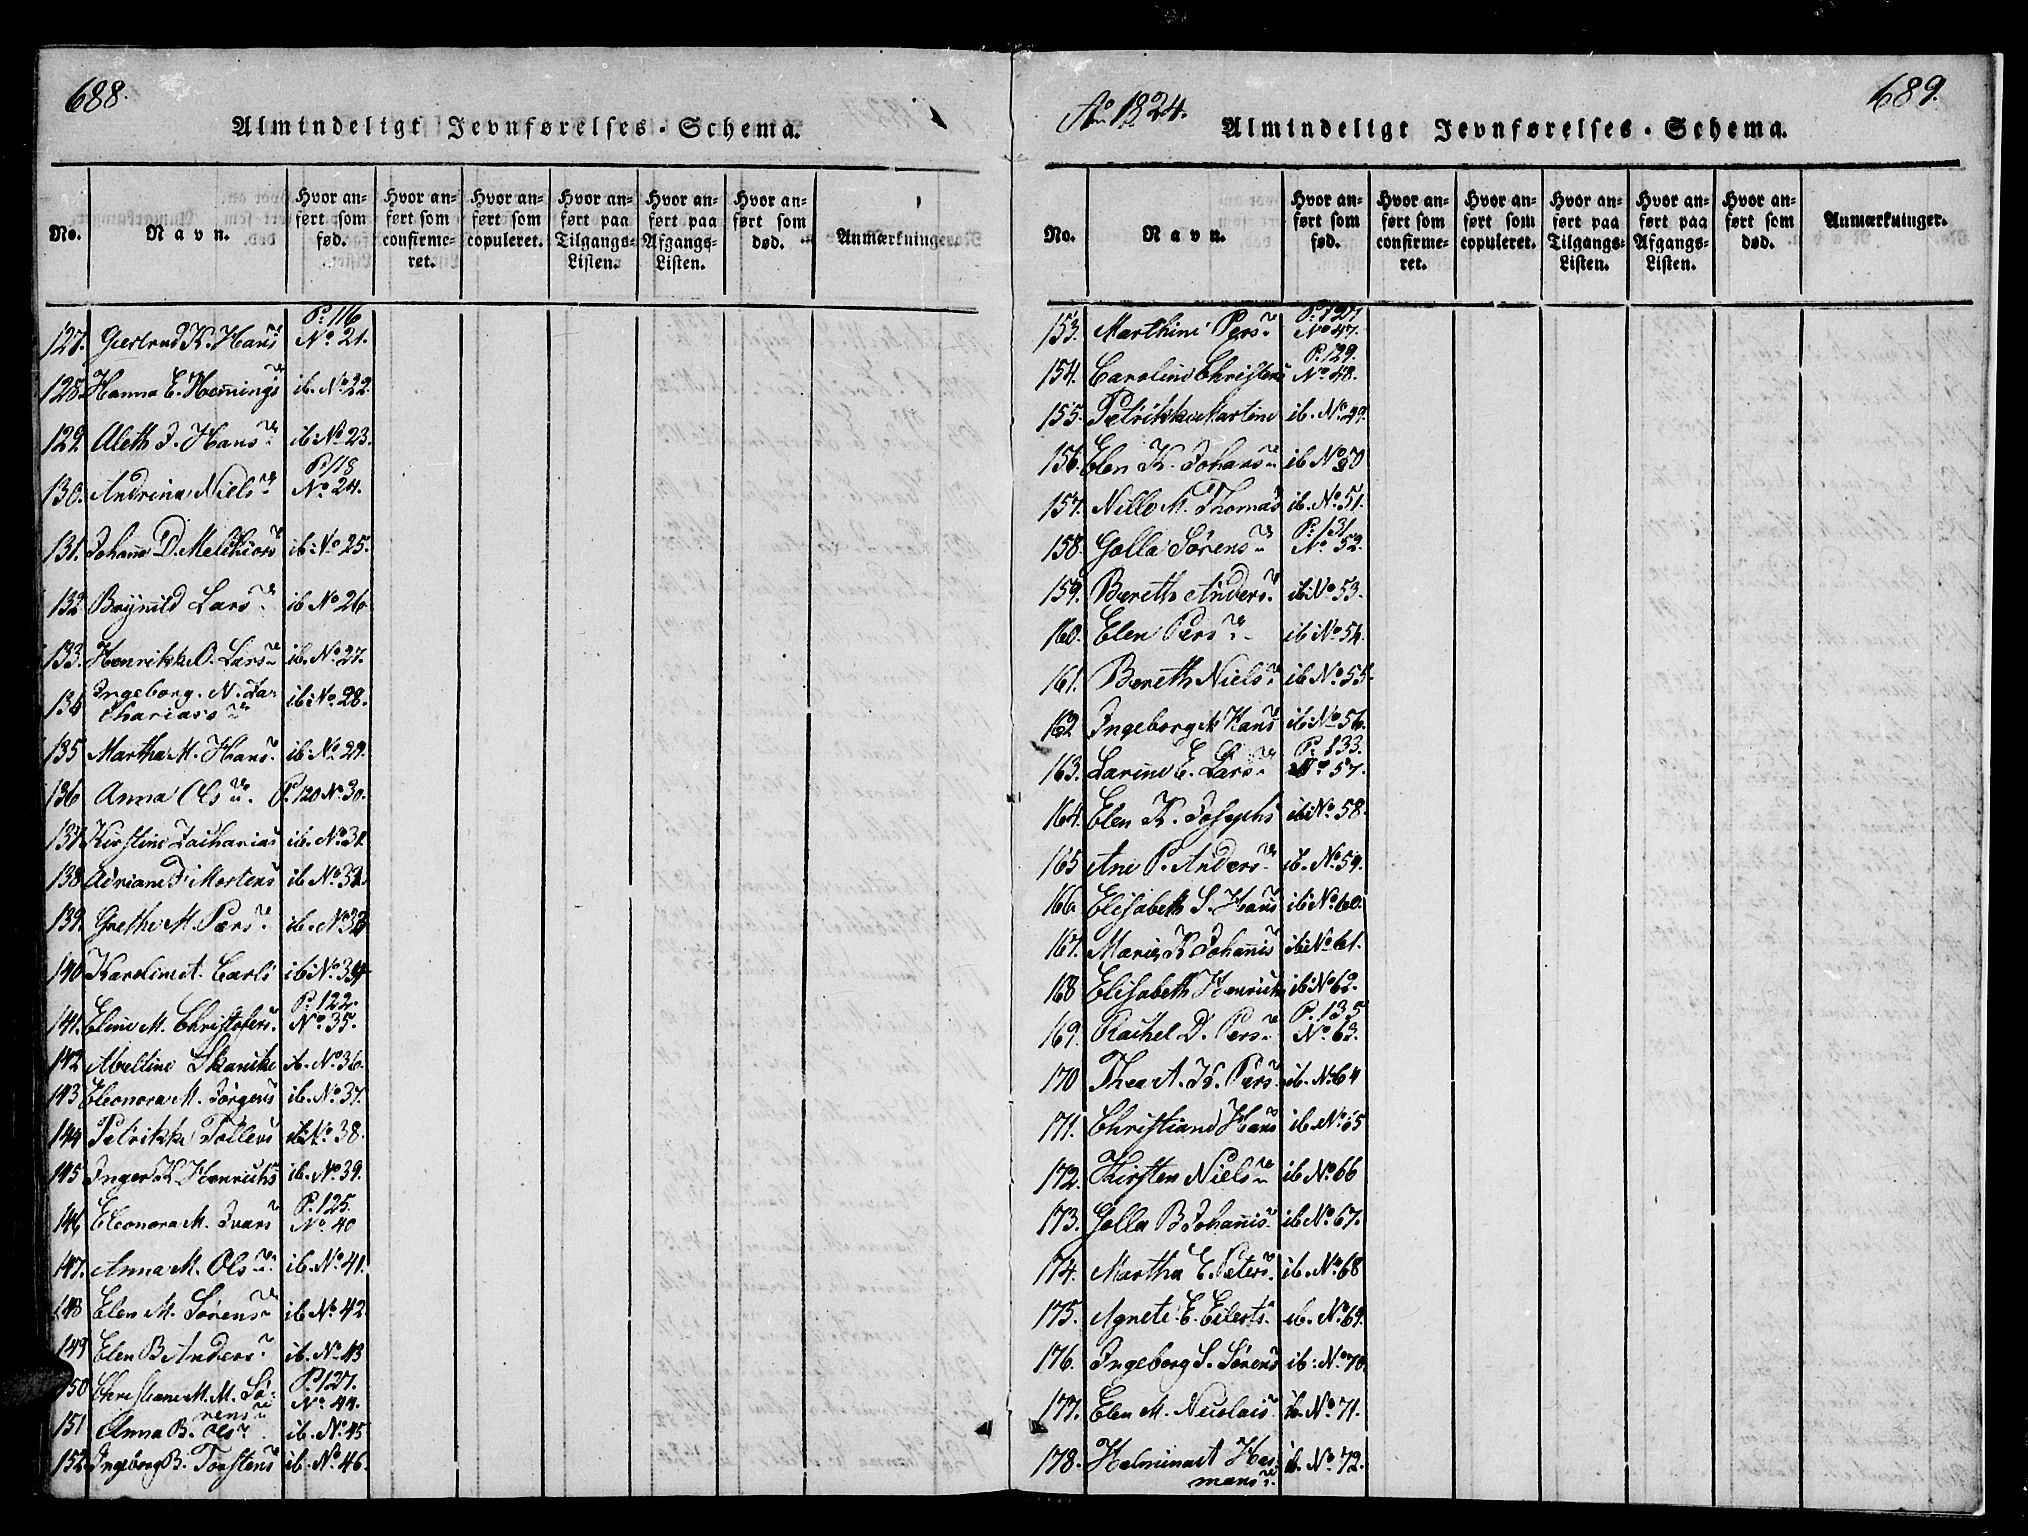 688.
Almindeligt Jevnførelses-Schema.
No.
Navn.
Hvor anført som fød.
Hvor anført som confirmeret.
Hvor anført som copuleret.
Hvor anført paa Tilgangs-Listen.
Hvor anført paa Afgangs-Listen.
Hvor anført som død.
Anmærkninger.
127. Giertrud K. Hans P. 116 No 21.
128. Hanna E. Hennings ib. No 22.
129. Aleth J. Hans ib. No 23.
130. Andrina Niels P. 118 No 24.
131. Johana D. Melchiors ib. No 25.
132 Brynild Lars ib No 26.
133. Henrikke O. Lars ib. No 27.
134 Ingeborg. N. Zachariass ib. No 28.
135 Martha M. Hans ib. No 29.
136 Anna Ols P. 120 No 30.
137. Kirstine Zacharias ib. No 31.
138 Adriane F. Mortens ib No 32.
139. Grethe M. Pers ib. No 33
140 Karoline A. Carls ib No 34
141. Eline M. Christofers P. 122. No 35.
142 Abelline Skancke ib. No 36.
143 Eleonora M. Jörgens ib. No 37.
144 Petrikke Tollevs ib No 38.
145 Inger K. Henrichs ib. No 39.
146 Eleonora M. Ivars P. 125. No 40
147. Anna M. Ols ib. No 41.
148 Elen M. Sörens ib No 42.
149 Elen B. Anders ib. No 43
150 Christiane M. M. Sörens P. 127. No 44.
151 Anna B. Ols ib. No 45
152 Ingeborg B. Torstens ib. No 46.
Ao 1824.
689.
Almindeligt Jevnførelses-Schema.
No.
Navn.
Hvor anført som fød.
Hvor anført som confirmeret.
Hvor anført som copuleret.
Hvor anført paa Tilgangs-Listen.
Hvor anført paa Afgangs-Listen.
Hvor anført som død.
Anmærkninger.
153. Marthine Pers P. 127 No 47.
154. Caroline Christens P. 129. No 48.
155. Petrikke Martine ib. No 49.
156. Elen K. Johans ib No 50
157. Nille M. Thomas ib. No 51.
158. Golla Sörens P. 131 No 52.
159. Bereth Anders ib No 53.
160. Elen Pers ib No 54.
161. Bereth Niels ib No 55.
162. Ingeborg M Hans ib No 56.
163. Larine E. Lars P. 133. No 57.
164. Elen K. Josephs ib No 58.
165 Ane P. Anders ib. No 59.
166. Elisabeth S. Hans ib No 60.
167. Maria K Johannis ib No 61.
168 Elisabeth Henrichs ib No 62.
169. Rachel D. Pers P. 135 No 63.
170 Thea A. K. Pers ib. No 64
171. Christiane Hans ib. No 65
172. Kirsten Niels ib No 66
173. Golla B Johannis ib No 67.
174. Martha E. Peters ib. No 68
175. Agnete E. Eilerts ib. No 69.
176. Ingeborg S. Sörens ib. No 70.
177. Elen M. Nicolais ib. No 71.
178. Helmina A Hermans ib. No 72.